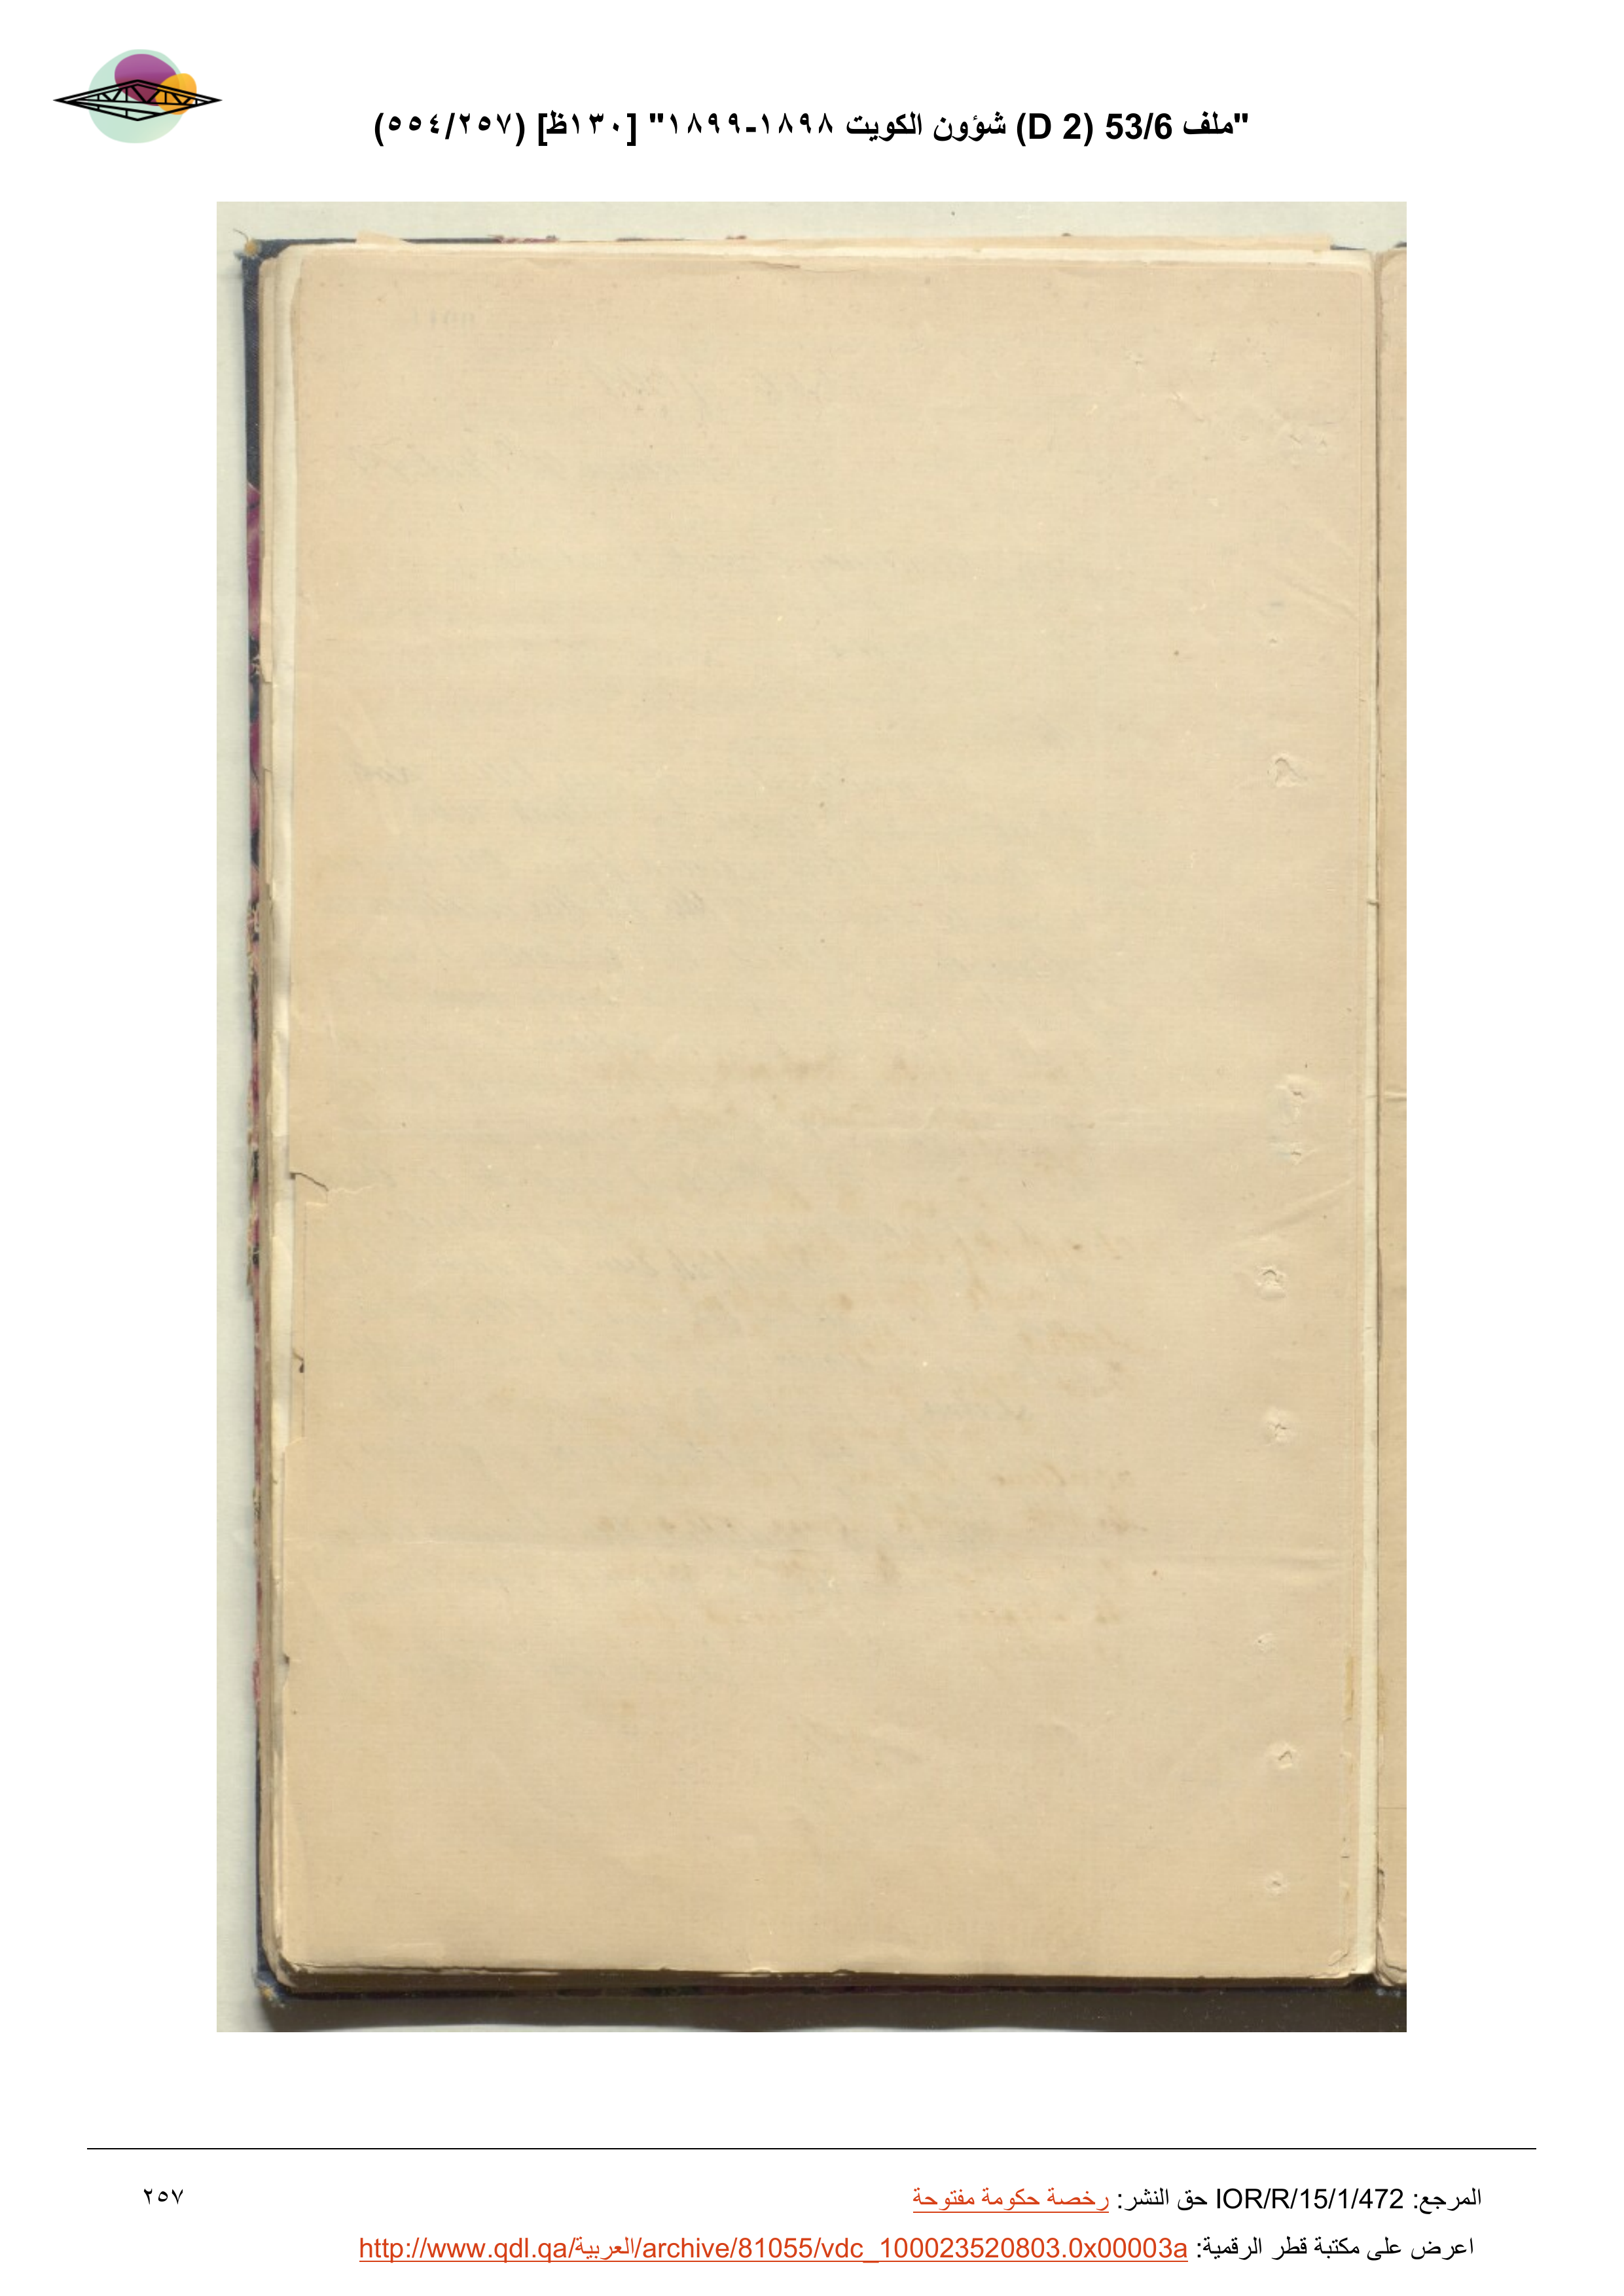 "ملف 53/6 (D 2) شؤون الكويت ١٨٩٨-١٨٩٩" [١٣٠ظ] (٢٥٧/٥٥٤)
المرجع: IOR/R/15/1/472 حق النشر: رخصة حكومة مفتوحة
٢٥٧
اعرض على مكتبة قطر الرقمية: http://www.qdl.qa/العربية/archive/81055/vdc_100023520803.0x00003a